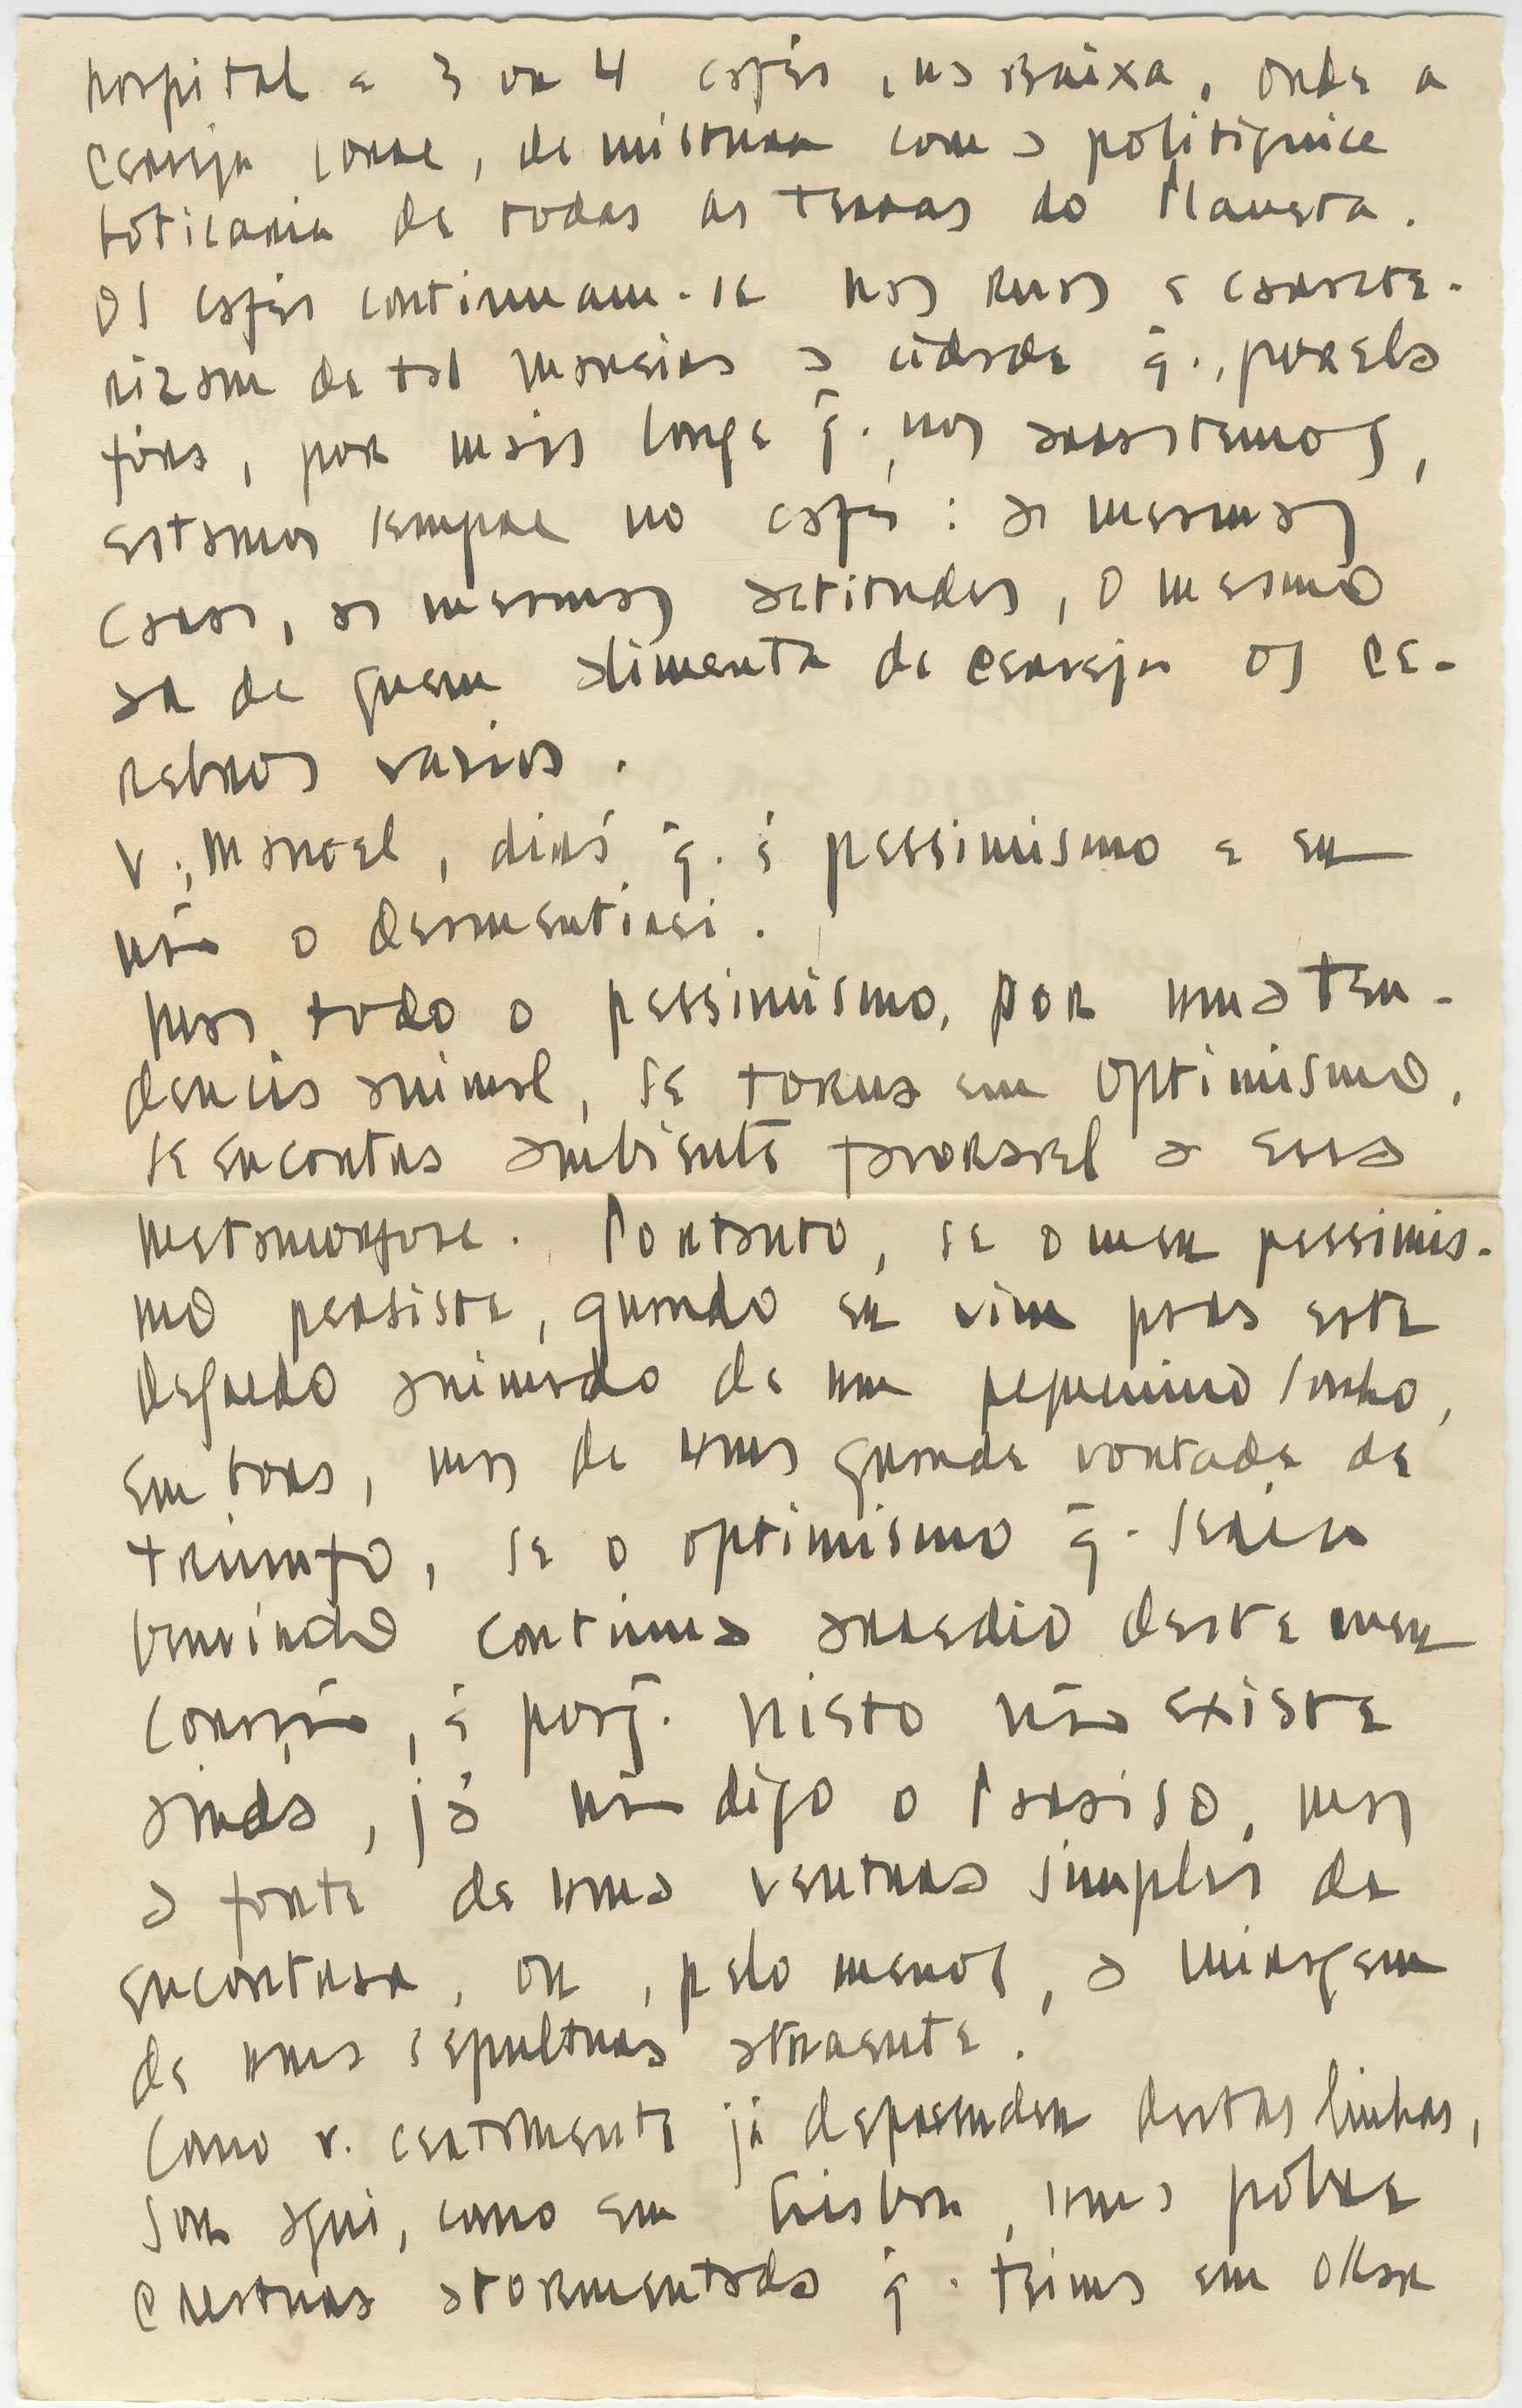 hospital e 3 ou 4 cafés, na Baixa, onde a
cerveja corre, de mistura com a politiquice
boticaria de todas as terras do Planeta.
Os cafés continuam-se nas ruas e caracte-
rizam de tal maneira a cidade q̃., por ela
fóra, por mais longe q̃. nos arrastemos,
estamos sempre no café: as mesmas
caras, as mesmas actitudes, o mesmo
ar de quem alimenta de cerveja os ce-
rebros varios.
V., Manoel, dirá q̃. é pessimismo e eu
não o desmentirei.
Mas todo o pessimismo, por uma ten-
dencia animal, se torna em optimismo,
se encontra ambiente favoravel a essa
metamorfose. Portanto, se o meu pessimis-
mo persiste, quando eu vim para este
degredo animado de um pequenino sonho,
embora, mas de uma grande vontade de
triunfo, se o optimismo q̃. seria
bemvindo continua arredio deste meu
coração, é porq̃. nisto não existe
ainda, já não digo o Paraiso, mas
a fonte de uma ventura simples de
encontrar, ou, pelo menos, a miragem
de uma sepultura atraente.
Como v. certamente já depreender destas linhas,
sou aqui, como em Lisboa, uma pobre
creatura atormentada q̃. teima em olhar